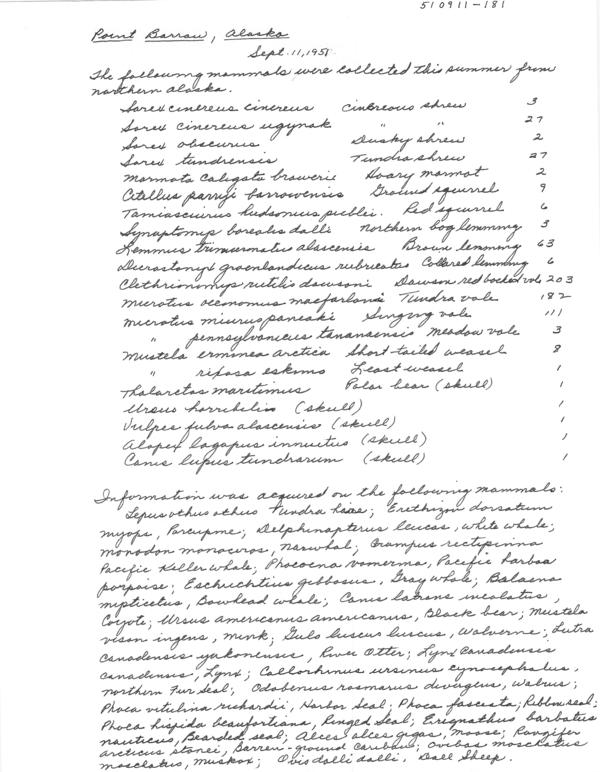 510911-181
Point Barrow, Alaska
Sept. 11, 1951
The following mammals were collected this summer from
northern Alaska.
Sorex cinereus cinereus Cinereous shrew 3
Sorex cinereus ugyunak " " 27
Sorex obscurus Dusky shrew 2
Sorex tundrensis Tundra shrew 27
Marmota caligata broweri Hoary marmot 2
Citellus parryi barrowensis Ground squirrel 9
Tamiasciurus hudsonicus preblei. Red squirrel 6
Synaptomys borealis dalli Northern bog lemming 3
Lemmus trimucronatus alascensis Brown lemming 63
Dicrostonyx groenlandicus rubricatus Collared lemming 6
Clethrionomys rutilis dawsoni Dawson red backed vole 203
Microtus oeconomus macfarlani Tundra vole 182
Microtus miurus paneaki Singing vole 111
" pennsylvanicus tananaensis Meadow vole 3
Mustela erminea arctica Short tailed weasel 8
" rixosa eskimo Least weasel 1
Thalarctos maritimus Polar bear (skull) 1
Ursus horribilis (skull) 1
Vulpes fulva alascensis (skull) 1
Alopex lagopus innuitus (skull) 1
Canis lupus tundrarum (skull) 1
Information was acquired on the following mammals:
Lepus othus othus Tundra hare; Erethizon dorsatum
myops, Porcupine; Delphinapterus leucas, white whale;
monodon monoceros, narwhal; Grampus rectipinna
Pacific Killer whale; Phocoena vomerina, Pacific harbor
porpoise; Eschrichtius gibbosus, Gray whale; Balaena
mysticetus, Bowhead whale; Canis latrans incolatus,
Coyote; Ursus americanus americanus, Black bear; Mustela
vison ingens, mink; Gulo luscus luscus, Wolverine; Lutra
canadensis yukonensis, River Otter; Lynx Canadensis
canadensis, Lynx; Callorhinus ursinus cynocephalus,
northern Fur Seal; Odobenus rosmarus divergens, Walrus;
Phoca vitulina richardii, Harbor Seal; Phoca fasciata; Ribbon seal;
Phoca hispida beaufortiana, Ringed Seal; Erignathus barbatus
nauticus, Bearded seal; Alces alces gigas, Moose; Rangifer
arcticus stonei, Barren-ground Caribou; Ovibos moschatus
moschatus, muskox; Ovis dalli dalli, Dall Sheep.